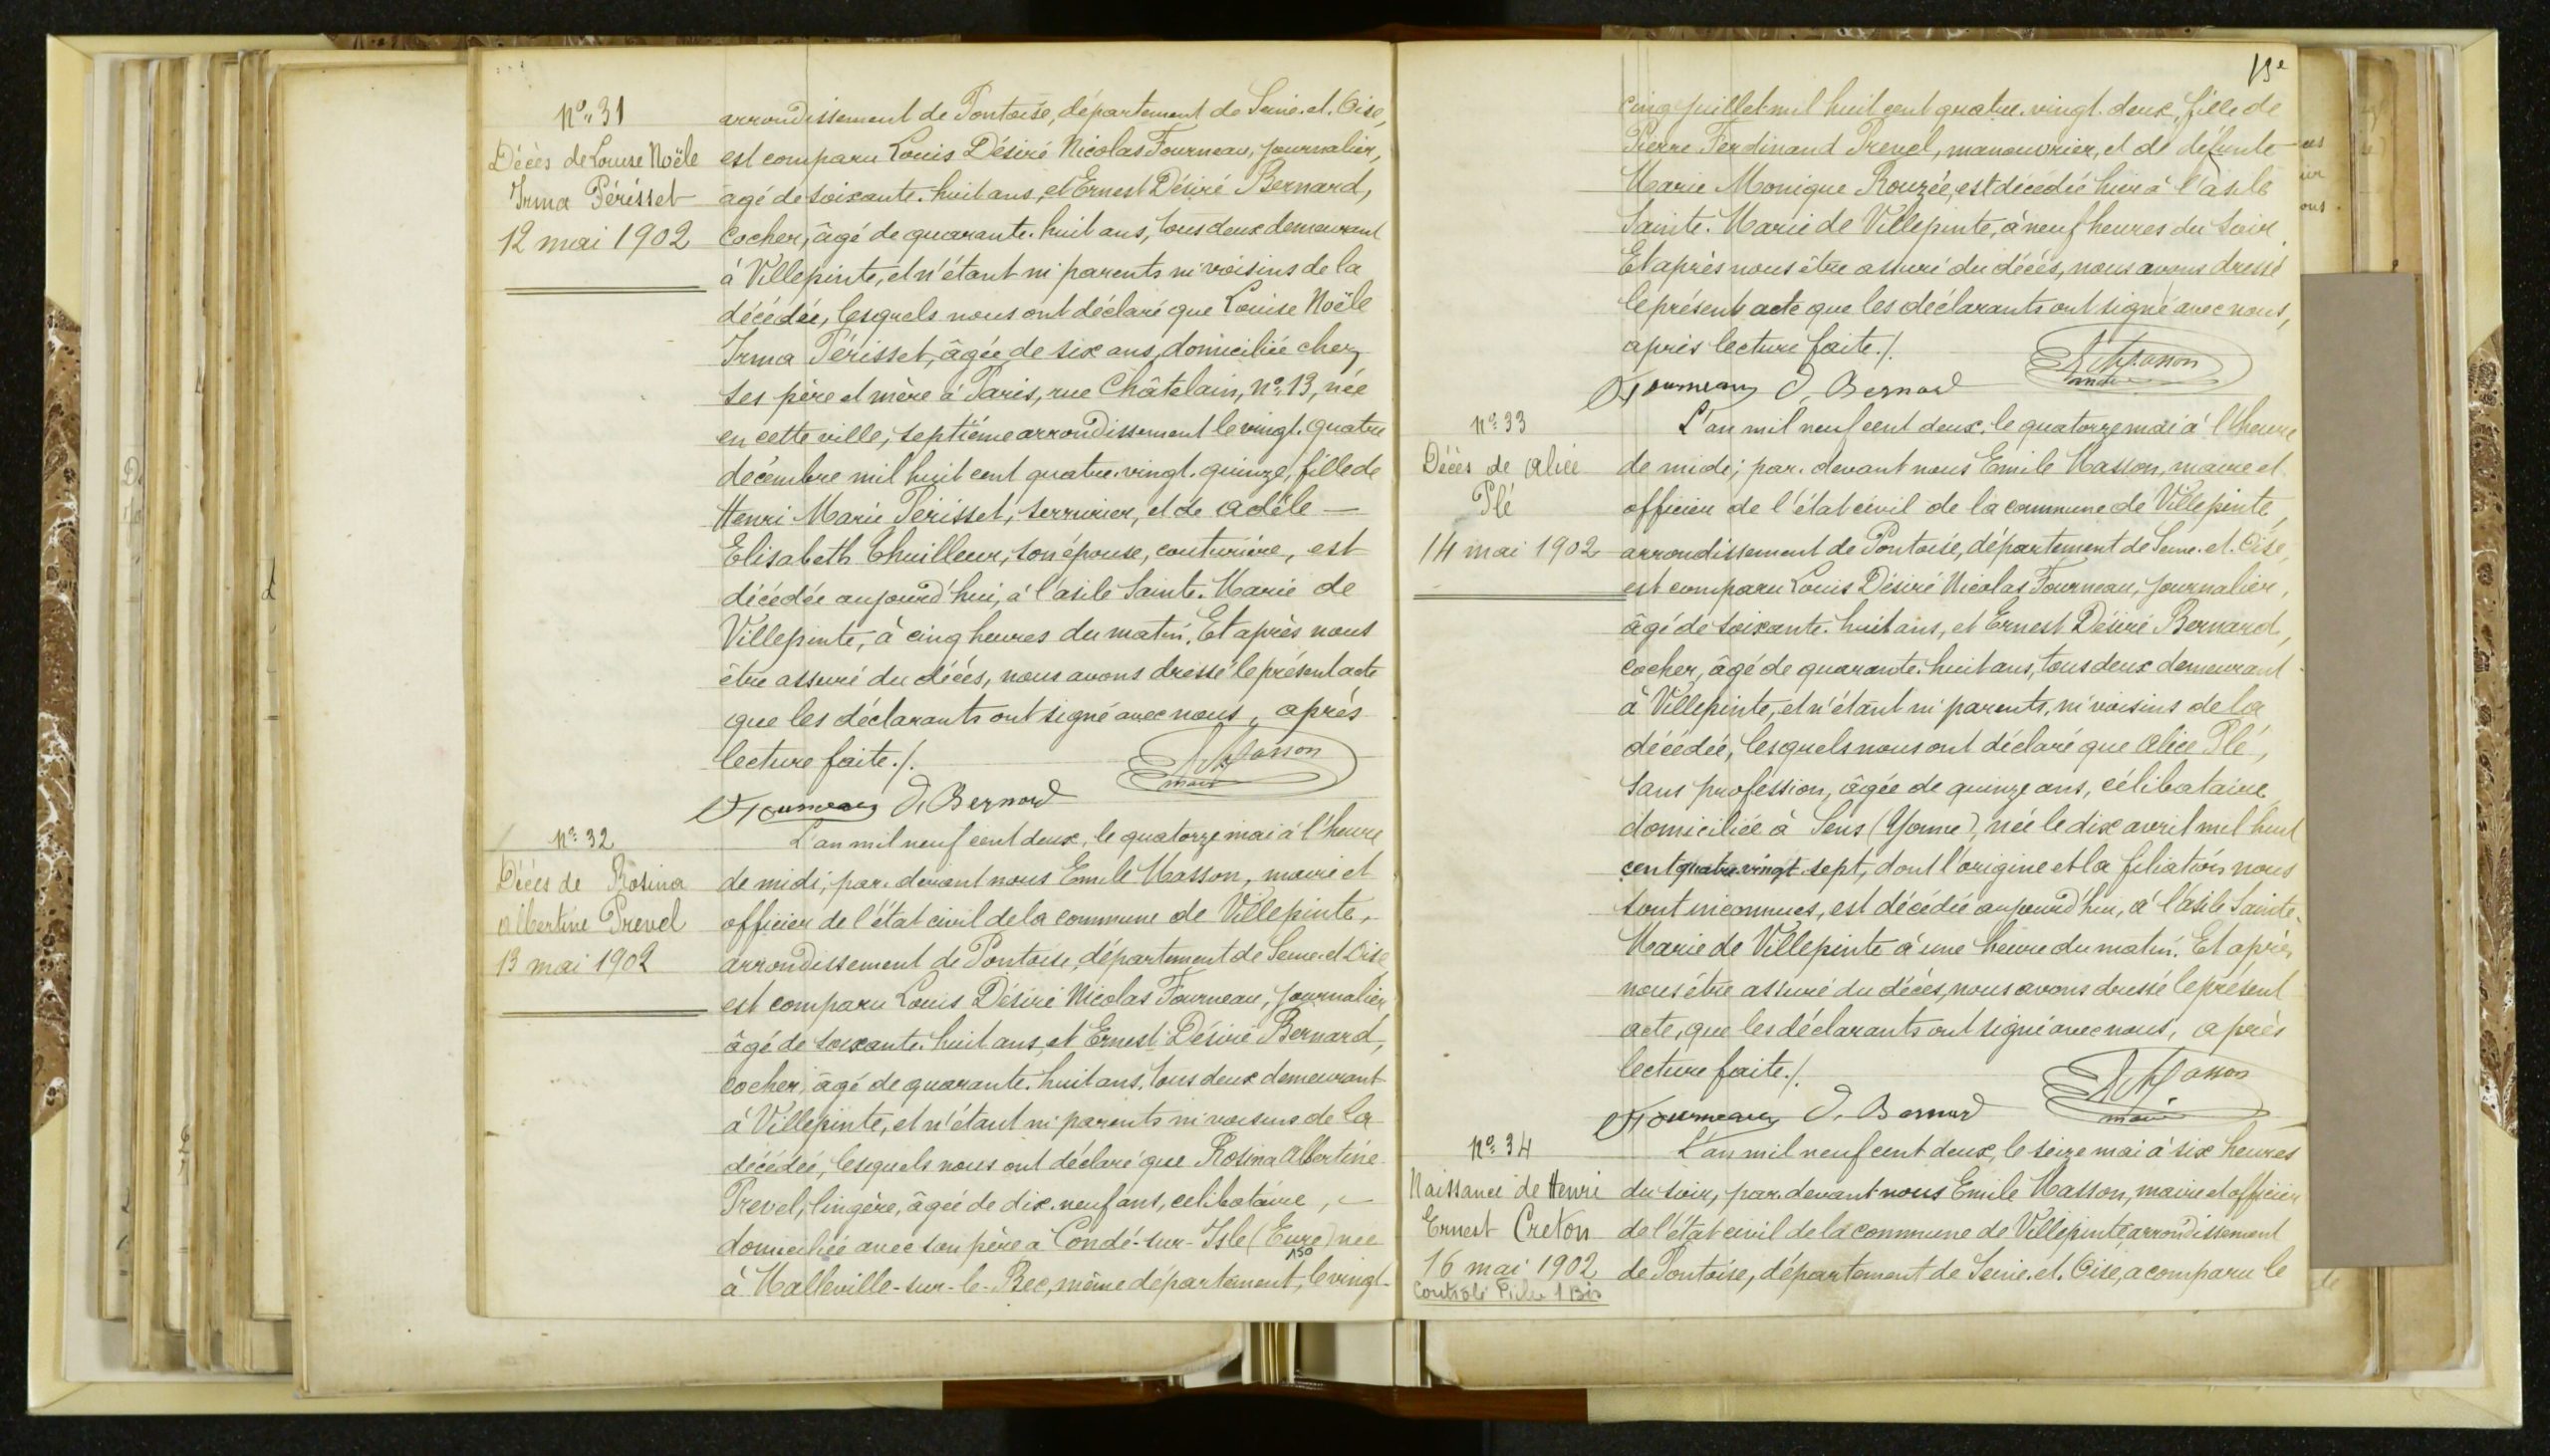 Nº 31
Décès de Louise Noële
Irma Périsset
12 mai 1902
arrondissement de Pontoise, département de Seine-et-Oise,
est comparu Louis Désiré Nicolas Fourneau, journalier,
âgé de soixante-huit ans, et Ernest Désiré Bernard,
cocher, âgé de quarante-huit ans, tous deux demeurant
à Villepinte, et n'étant ni parents ni voisins de la
décédée, lesquels nous ont déclaré que Louise Noële
Irma Périsset, âgée de six ans, domiciliée chez
ses père et mère à Paris, rue Châtelain, nº 13, née
en cette ville, septième arrondissement le vingt-quatre
décembre mil huit cent quatre-vingt-quinze, fille de
Henri Marie Périsset, serrurier, et de Adèle —
Elisabeth Thuilleur, son épouse, couturière, est
décédée aujourd'hui, à l'asile Sainte-Marie de
Villepinte, à cinq heures du matin. Et après nous
être assuré du décès, nous avons dressé le présent acte
que les déclarants ont signé avec nous, après
lecture faite./.
E Masson
maire
Fourneau D. Bernard
Nº 32
Décès de Rosina
Albertine Prevel
13 mai 1902
L'an mil neuf cent deux, le quatorze mai à l'heure
de midi, par-devant nous Emile Masson, maire et
officier de l'état civil de la commune de Villepinte,
arrondissement de Pontoise, département de Seine-et-Oise
est comparu Louis Désiré Nicolas Fourneau, journalier
âgé de soixante-huit ans, et Ernest Désiré Bernard,
cocher, âgé de quarante-huit ans, tous deux demeurant
à Villepinte, et n'étant ni parents ni voisins de la
décédée, lesquels nous ont déclaré que Rosina Albertine
Prevel, lingère, âgée de dix-neuf ans, celibataire,
domiciliée avec son père à Condé-sur-Isle (Eure) née
150
à Malleville-sur-le-Bec, même département, le vingt-
15e
cinq juillet mil huit cent quatre-vingt-deux, fille de
Pierre Ferdinand Prevel, manouvrier, et de défunte
Marie Monique Rouzée, est décédée hier à l'asile
Sainte-Marie de Villepinte, à neuf heures du soir.
Et après nous être assuré du décès, nous avons dressé
le présent acte que les déclarants ont signé avec nous,
après lecture faite./.
E Masson
maire
Fourneau D. Bernard
Nº 33
Décès de Alice
Plé
14 mai 1902
L'an mil neuf cent deux, le quatorze mai à l'heure
de midi; par-devant nous Emile Masson, maire et
officier de l'état civil de la commune de Villepinte,
arrondissement de Pontoise, département de Seine-et-Oise,
est comparu Louis Désiré Nicolas Fourneau, journalier,
âgé de soixante-huit ans, et Ernest Désiré Bernard,
cocher, âgé de quarante-huit ans, tous deux demeurant
à Villepinte, et n'étant ni parents, ni voisins de la
décédée, lesquels nous ont déclaré que Alice Plé,
sans profession, âgée de quinze ans, célibataire
domiciliée à Sens (Yonne), née le dix avril mil huit
cent quatre-vingt-sept, dont l'origine et la filiation nous
sont inconnues, est décédée aujourd'hui, à l'asile Sainte-
Marie de Villepinte à une heure du matin. Et après
nous être assuré du décès, nous avons dressé le présent
acte, que les déclarants ont signé avec nous, après
lecture faite./.
E Masson
maire
Fourneau D. Bernard
Nº 34
Naissance de Henri
Ernest Creton
16 mai 1902
Contrôlé
L'an mil neuf cent deux, le seize mai à six heures
du soir, par-devant nous Emile Masson, maire et officier
de l'état civil de la commune de Villepinte, arrondissement
de Pontoise, département de Seine-et-Oise, a comparu le